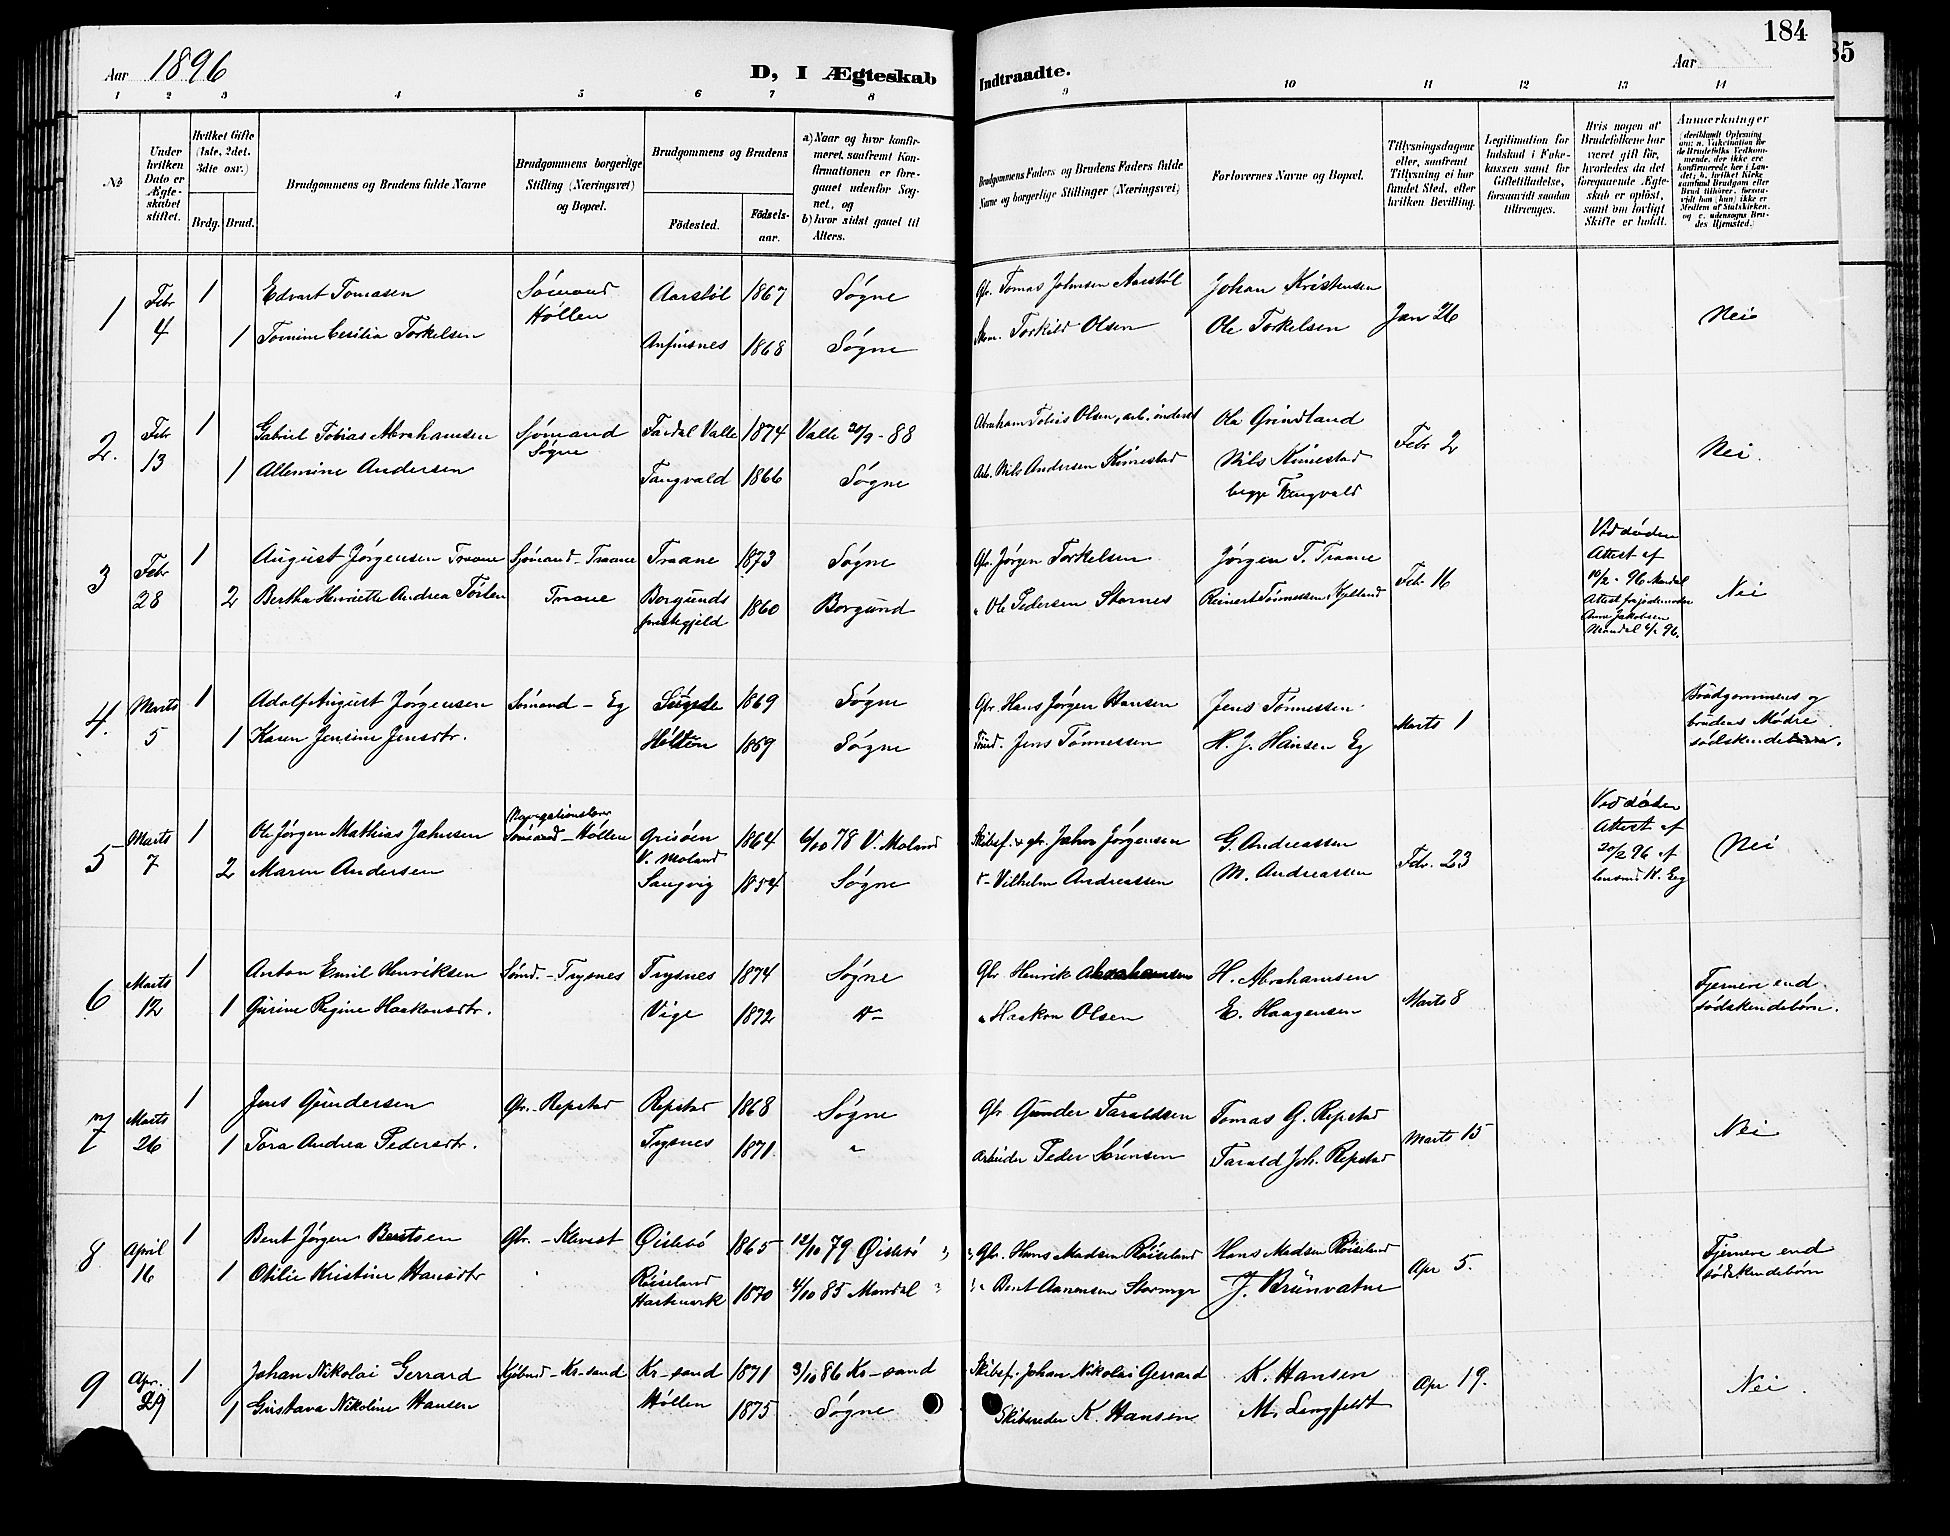 184
85
Aar 1896
D, I Ægteskab Indtraadte.
Aar
1 2 3 4 5 6 7 8 9 10 11 12 13 14
No
Under hvilken Dato er Ægteskabet stiftet.
Hvilket Gifte (1ste, 2det, 3die osv.)
Brdg. Brud.
Brudgommens og Brudens fulde Navne
Brudgommens borgerlige Stilling (Næringsvei) og Bopæl.
Brudgommens og Brudens
Födested.
Födselsaar.
a) Naar og hvor konfirmeret, samfremt Konfirmationen er foregaaet udenfor Sognet, og
b) hvor sidst gaaet til Alters.
Brudgommens Faders og Brudens Faders fulde Navne og borgerlige Stillinger (Næringsvei)
Forlovernes Navne og Bopæl.
Tillysningsdagene eller, samfremt Tillysning ei har fundet Sted, efter hvilken Bevilling.
Legitimation for Indskud i Enkekassen samt for Giftetilladelse, forsaavidt saadan tiltrænges.
Hvis nogen af Brudefolkene har været gift för, hvorledes da det foregaaende Ægteskab er oplöst, samt om lovligt Skifte er holdt.
Anmerkninger
1 Febr 4 1 Edvart Tomasen Sømand Høllen Aarstøl 1867 Søgne Gbr. Tomas Johnsen Aarstøl Johan Kristensen Jan 26 Nei
1 Tomine Cesilia Torkelsen Anfinsnes 1868 Søgne Torkild Olsen Ole Torkelsen
2. Febr 13 1 Gabriel Tobias Abrahamsen Sjømand Søgne Fardal Valle 1874 Valle 20/9 - 88 Abraham Tobias Olsen, arb. Ole Grindland Febr 2 Nei.
1 Allemine Andersen Tangvald 1866 Søgne Arb. Nils Andersen Kimestad Nils Kimestad
begge Tangvald
3 Febr 28 1 August Jørgensen Traane Sjømand - Traane Traane 1873 Søgne Gbr. Jørgen Torkelsen Jørgen T. Traane Feb. 16 Ved døden Attest af 10/2 - 96 Mandal Attest fra jodemoder Anne Jakobsen Mandal 6/2 96. Nei
2 Bertha Henriette Andrea Torlen Traane Borgunds prestegjeld 1860 Borgund " Ole Pedersen Stornes Reinert Tønnessen Kylland
4. Marts 5 1 Adolf August Jørgensen Sømand - Eg 1869 Søgne Gbr. Hans Jørgen Hansen Jens Tønnessen Marts 1 Brudgommens og brudens Mødre sødskende.
1 Karen Jensine Jensdtr. Holten 1859 Søgne Jens Tønnessen H. J. Hansen Eg
5 Marts 7 1 Ole Jørgen Mathias Jahnsen Navigationslærer Sømand - Høllen Grisøen V. Moland 1864 6/10 78 V. Moland Skibsf. & gbr. Jahn Jørgensen G. Andreassen Febr. 23 Ved døden Attest af 20/2 96 af lensmd. H. Eeg Nei
2 Maren Andersen Langvig 1854 Søgne Vilhelm Andreassen M. Andreassen
6 Marts 12 1 Anton Emil Henriksen Sømd. - Trysnes Trysnes 1874 Søgne Gbr. Henrik Abrahamsen H. Abrahamsen Marts 8 Fjernere end sødskendebørn.
1 Gurine Regine Haakonsdtr. Vige 1872 " " Haakon Olsen E. Haagensen
7 Marts 26 1 Jens Gundersen Gbr. - Repstad Repstad 1868 Søgne Gbr Gunder Taraldsen Tomas G. Repstad Marts 15 Nei
1 Tora Andrea Pedersdtr. Trysnes 1871 " Arbeider Peder Sørensen Tarald Joh. Repstad
8 April 16 1 Bent Jørgen Bentsen Gbr. - Klevest Øislebø 1865 12/10 79 Øislebø Gbr. Hans Madsen Røiseland Hans Madsen Røiseland Apr 5. Fjernere end sødskendebørn
1 Otilie Kristine Hansdtr Røiseland Hartmark 1870 4/10 85 Mandal Bent Aanensen Stormyr J. Brunvatne
9 Apr. 29 1 Johan Nikolai Gerrard Kjøbmd - Kr-sand Kr-sand 1871 3/10 86 Kr-sand Skibsf. Johan Nikolai Gerrard K. Hansen Apr 19. Nei.
1 Gustava Nikoline Hansen Høllen 1875 Søgne Skibsreder K. Hansen M. Langfeldt